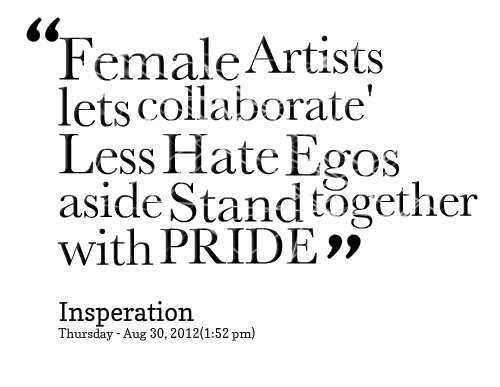 “Female Artists
lets collaborate'
Less Hate Egos
aside Stand together
with PRIDE”
Insperation
Thursday - Aug 30, 2012(1:52 pm)